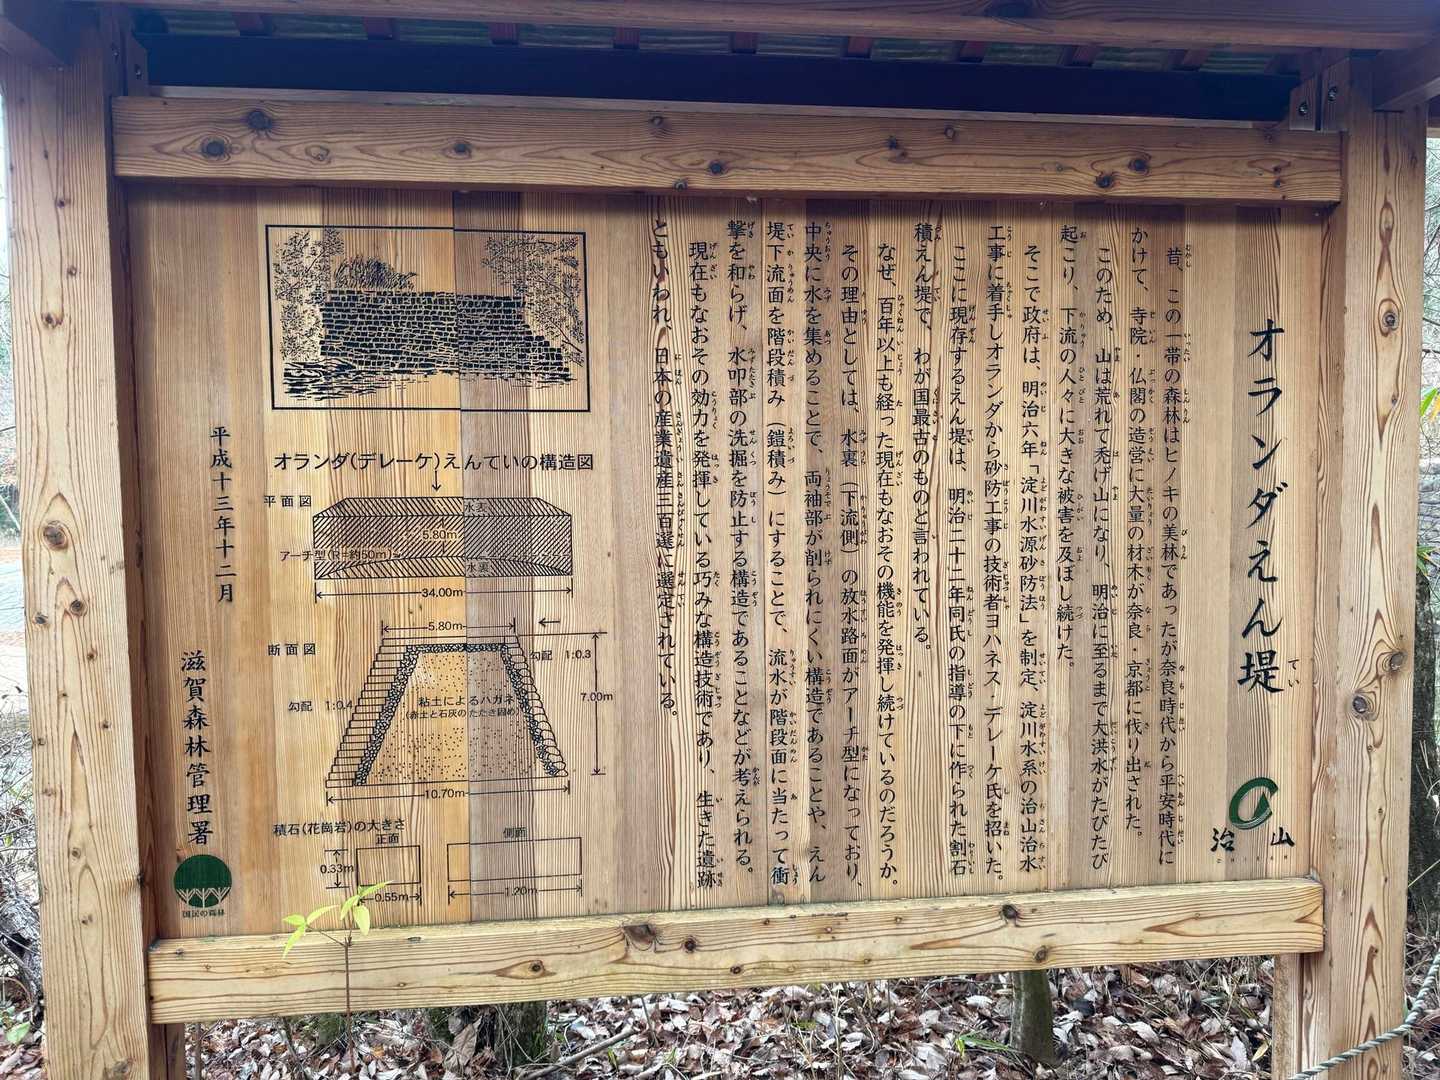 オランダえん堤
てい
治山
CHISAN
昔、この一帯の森林はヒノキの美林であったが奈良時代から平安時代に
かけて、寺院・仏閣の造堂に大量の材木が奈良・京都に伐り出された。
このため、山は荒れて禿げ山になり、明治に至るまで大洪水がたびたび
起こり、下流の人々に大きな被害を及ぼし続けた。
そこで政府は、明治六年「淀川水源砂防法」を制定、淀川水系の治山治水
工事に着手しオランダから砂防工事の技術者ヨハネス・デレーケ氏を招いた。
ここに現存するえん堤は、明治二十二年同氏の指導の下に作られた割石
積えん堤で、わが国最古のものと言われている。
なぜ、百年以上も経った現在もなおその機能を発揮し続けているのだろうか。
その理由としては、水裏（下流側）の放水路面がアーチ型になっており、
中央に水を集めることで、両袖部が削られにくい構造であることや、えん
堤下流面を階段積み（鎧積み）にすることで、流水が階段面に当たって衝
撃を和らげ、水叩部の洗掘を防止する構造であることなどが考えられる。
現在もなおその効力を発揮している巧みな構造技術であり、生きた遺跡
ともいわれ、日本の産業遺産三百選に選定されている。
オランダ(デレーケ)えんていの構造図
平面図
水表
5.80m
アーチ型(R=約50m)
水裏
34.00m
断面図
5.80m
勾配 1:0.3
勾配 1:0.4
粘土によるハガネ
(赤土と石灰のたたき固め)
7.00m
10.70m
積石(花崗岩)の大きさ
正面
側面
0.33m
0.55m
1.20m
平成十三年十二月
滋賀森林管理署
国民の森林